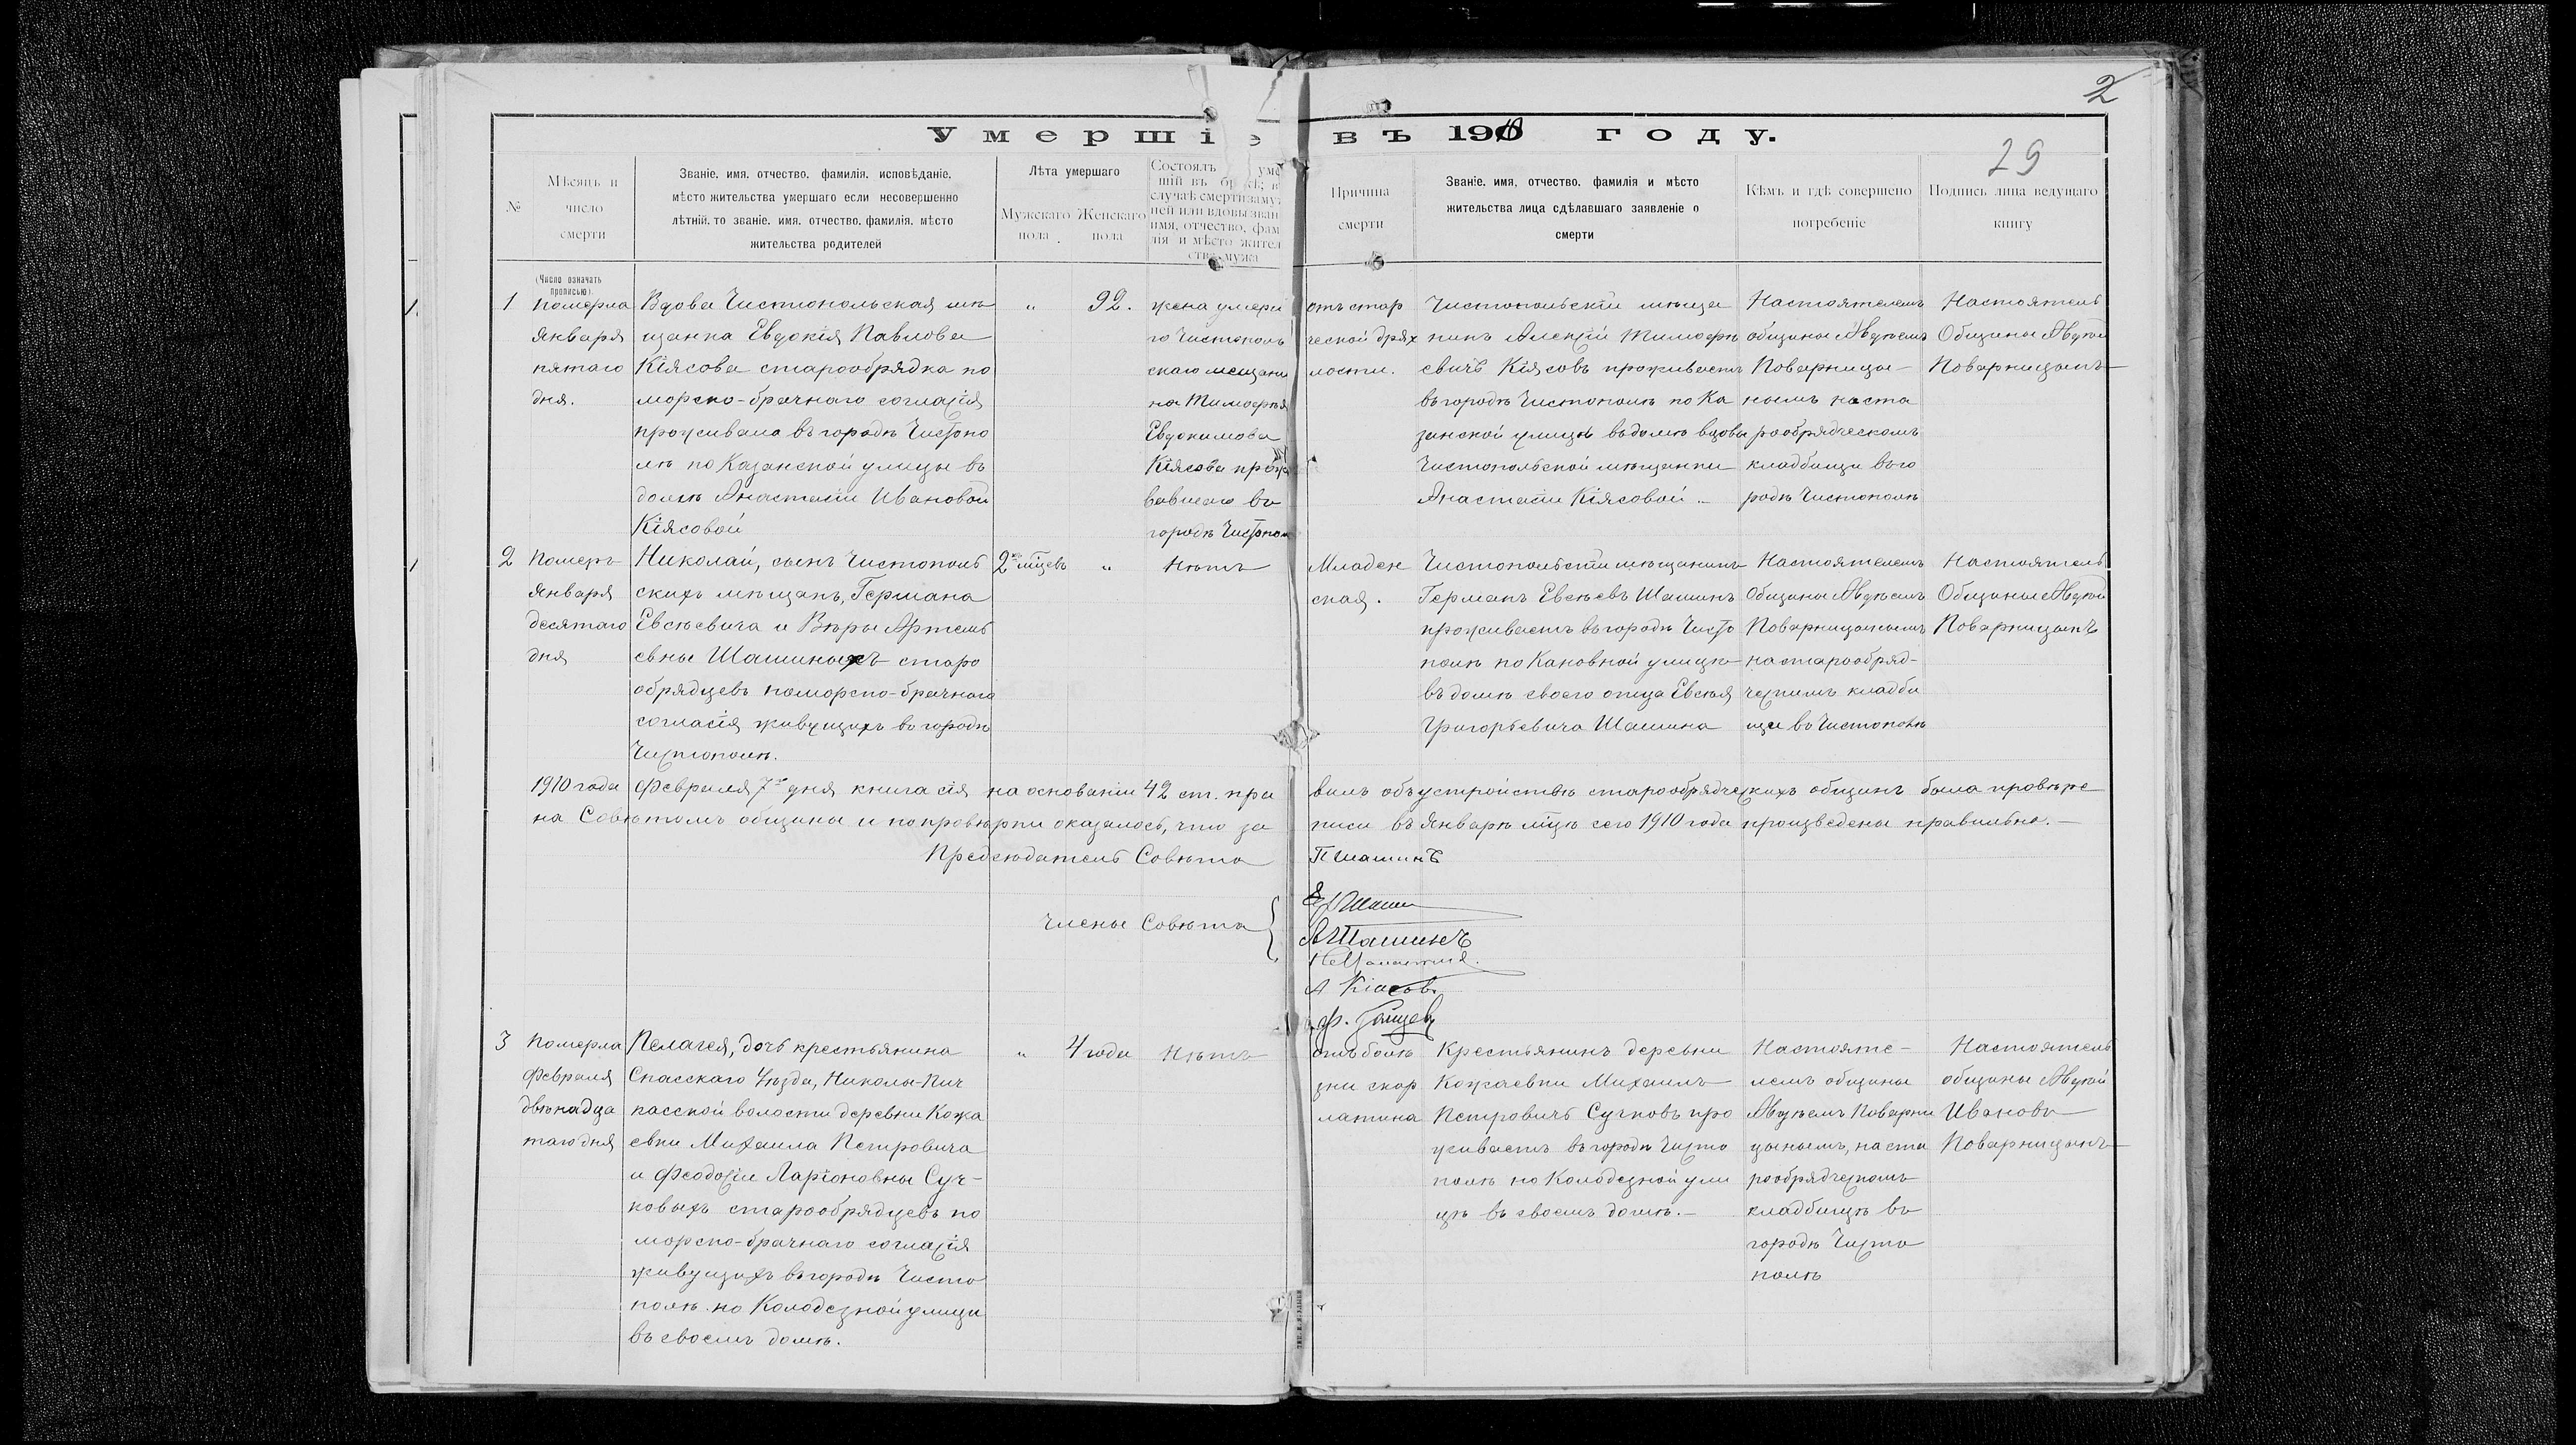 2
29
Умершіе въ 1910 году.
№
Мѣсяцъ и
число
смерти
(Число означать
прописью).
Званіе, имя, отчество, фамилія, исповѣданіе,
мѣсто жительства умершаго если несовершенно
лѣтній, то званіе, имя, отчество, фамилія, мѣсто
жительства родителей
Лѣта умершаго
Мужскаго пола
Женскаго пола
Состоялъ уме
шій въ бр въ
случаѣ смерти замуж
ней или вдовы зван
имя, отчество, фам
лія и мѣсто жител
ства мужа
Причина
смерти
Званіе, имя, отчество, фамилія и мѣсто
жительства лица сдѣлавшаго заявленіе о
смерти
Кѣмъ и гдѣ совершено
погребеніе
Подпись лица ведущаго
книгу
1
Померла
Января
пятаго
дня.
Вдова Чистопольская мѣ
щанка Евдокія Павлова
Кіясова старообрядка по
морско-брачнаго согласія
проживала въ городѣ Чистопо
лѣ по Казанской улицы въ
домѣ Анастасіи Ивановой
Кіясовой
"
92.
жена умерш
го Чистополь
скаго мещани
на Тимофея
Евдокимова
Кіясова прожи
вавшаго въ
городѣ Чистопол
отъ стар
ческой дрях
лости.
Чистопольскій мѣща
нинъ Алексѣй Тимофѣ
евичъ Кіясовъ проживаетъ
въ городѣ Чистополѣ по Ка
занской улицѣ въ домѣ вдовы
Чистопольской мѣщанки
Анастасіи Кіясовой.
Настоятелемъ
общины Авдѣемъ
Поварницы-
нымъ на ста
рообрядческомъ
кладбищи въ го
родѣ Чистополѣ
Настоятель
Общины Авдѣй
Поварницынъ
2
Померъ
Января
десятаго
дня
Николай, сынъ Чистополь
скихъ мѣщанъ, Германа
Евсѣевича и Вѣры Артемь
евны Шашиныхъ старо
обрядцевъ поморско-брачнаго
согласія живущихъ въ городѣ
Чистополѣ.
2хъ мѣцевъ
"
Нѣтъ
Младен
ская.
Чистопольскій мѣщанинъ
Германъ Евсѣевъ Шашинъ
проживаетъ въ городѣ Чисто
полѣ по Кановной улицѣ
въ домѣ своего отца Евсѣя
Григорьевича Шашина
Настоятелемъ
Общины Авдѣемъ
Поварницынымъ
на старообряд-
ческимъ кладби
щи въ Чистополѣ
Настоятель
Общины Авдѣй
Поварницынъ
1910 года Февраля 7го дня книга сія на основаніи 42 ст. пра
вилъ объ устройствѣ старообрядческихъ общинъ была провѣре
на Совѣтомъ общины и по провѣрки оказалось, что за
писи въ Январѣ мѣцѣ сего 1910 года произведены правильно.
Предсѣдатель Совѣта
П Шашинъ
Члены Совѣта
Шаши
А Шашинъ
А Кіясовъ
Ф.
3
Померла
Февраля
двѣнадца
таго дня
Пелагея, дочь крестьянина
Спасскаго Уѣзда, Николы-Пич
касской волости деревни Кожа
евки Михаила Петровича
и Феодосіи Ларіоновны Суч-
ковыхъ старообрядцевъ по
морско-брачнаго согласія
живущихъ въ городѣ Чисто
полѣ по Колодезной улицы
въ своемъ домѣ.
"
4 года
Нѣтъ
отъ болѣ
зни скар
латина
Крестьянинъ деревни
Кожаевки Михаилъ
Петровичъ Сучковъ про
живаетъ въ городѣ Чисто
полѣ по Колодезной ули
цѣ въ своемъ домѣ.
Настояте-
лемъ общины
Авдѣемъ Поварни
цынымъ, на ста
рообрядческомъ
кладбищѣ въ
городѣ Чисто
полѣ
Настоятель
общины Авдѣй
Ивановъ
Поварницынъ